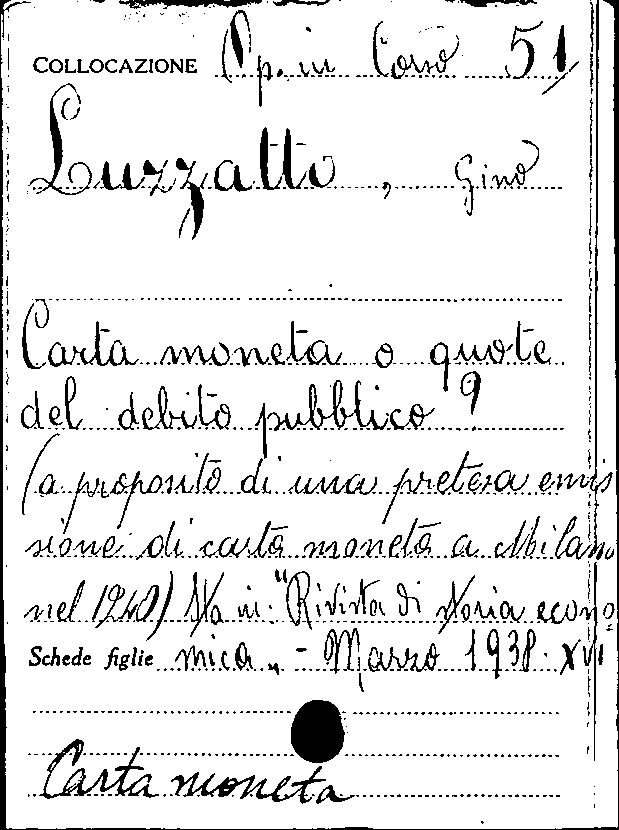 COLLOCAZIONE Op. in Corso 51
Luzzatto, Gino
Carta moneta o quote
del debito pubblico?
(a proposito di una pretesa emis
sione di carta moneta a Milano
nel 1240) Sta in: "Rivista di storia econo-
Schede figlie mica" - Marzo 1938. XVI
Carta moneta